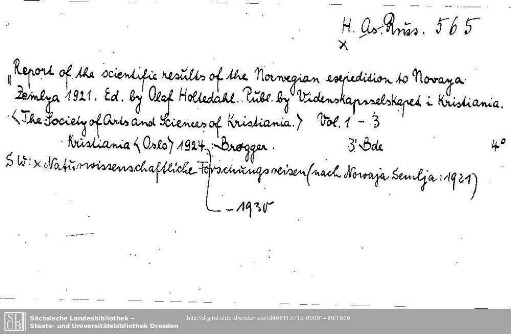 H. As. Russ. 565
x
"Report of the scientific results of the Norwegian expedition to Novaya
Zemlya 1921. Ed. by Olaf Holtedahl. Publ. by Videnskapsselskapet i Kristiania.
<The Society of Arts and Sciences of Kristiania.> Vol. 1 - 3
Kristiania <Oslo> 1924 Brøgger. 3 Bde 4°
SW: x Naturwissenschaftliche Forschungsreisen (nach Nowaja Semlja: 1921)
- 1930
SLUB
Sächsische Landesbibliothek –
Staats- und Universitätsbibliothek Dresden